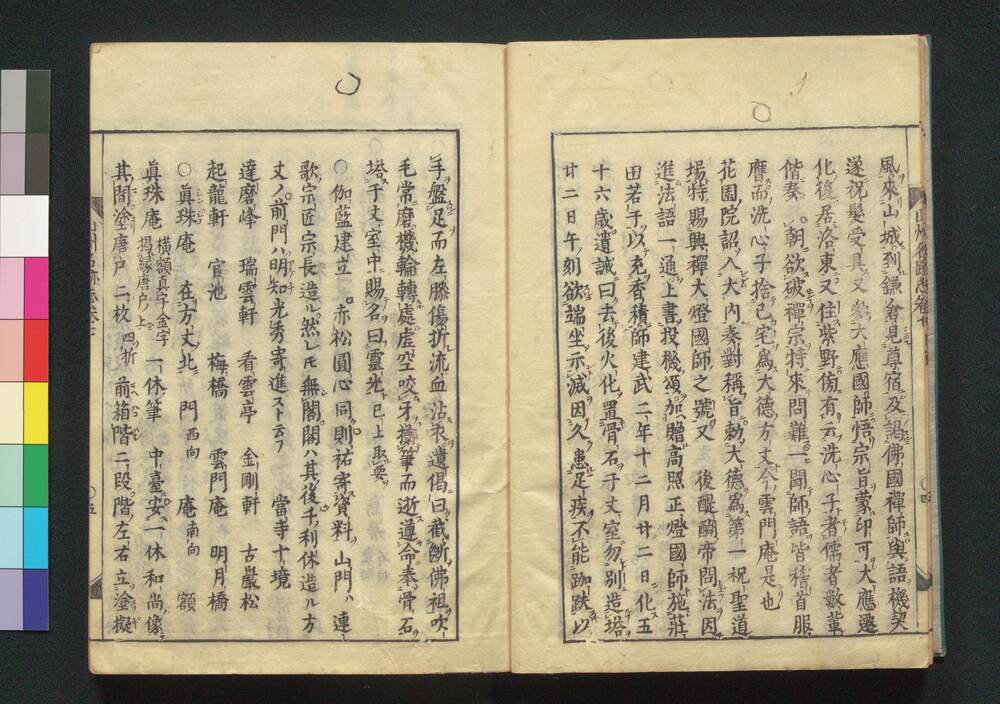 風來山城到鎌倉見尊宿及謁佛國禪師與語機契
遂祝髮受具又參大應國師悟宗旨蒙印可大應遷
化後居洛東又住紫野傍有云洗心子者儒者數輩
偕奏朝欲破禪宗特來問難一聞師語皆稽首服
膺而洗心子捨己宅爲大德方丈今雲門庵是也
花園院詔入大内奏對稱旨勅大德爲第一祝聖道
場特賜興禪大燈國師之號又 後醍醐帝問法因
進法語一通上書投機頌加贈高照正燈國師施莊
田若干以充香積師建武二年十二月廿二日化五
十六歲遺誡曰去後火化置骨石于丈室勿別造塔
廿二日午刻欲端坐示滅因久患足疾不能跏趺以
手盤足而左膝傷折流血沾衣遺偈曰截斷佛祖吹
毛常磨機輪轉處虛空咬牙擲筆而逝遵命奉骨石
塔于丈室中賜名曰靈光已上取要
○伽藍建立赤松圓心同則祐寄資料山門ハ連
歌宗匠宗長造ル然レトモ無閣閣ハ其後千利休造ル方
丈ノ前門ハ明知光秀寄進スト云フ 當寺十境
達磨峰 瑞雲軒 看雲亭 金剛軒 古嚴松
起龍軒 官池 梅橋 雲門庵 明月橋
○眞珠庵 在方丈北 門西向 庵南向 額
眞珠庵 横額真字金字掲縁唐戸上 一休筆 中臺安一休和尚像
其間塗唐戸二枚四折 前箱階二段階左右立塗擬